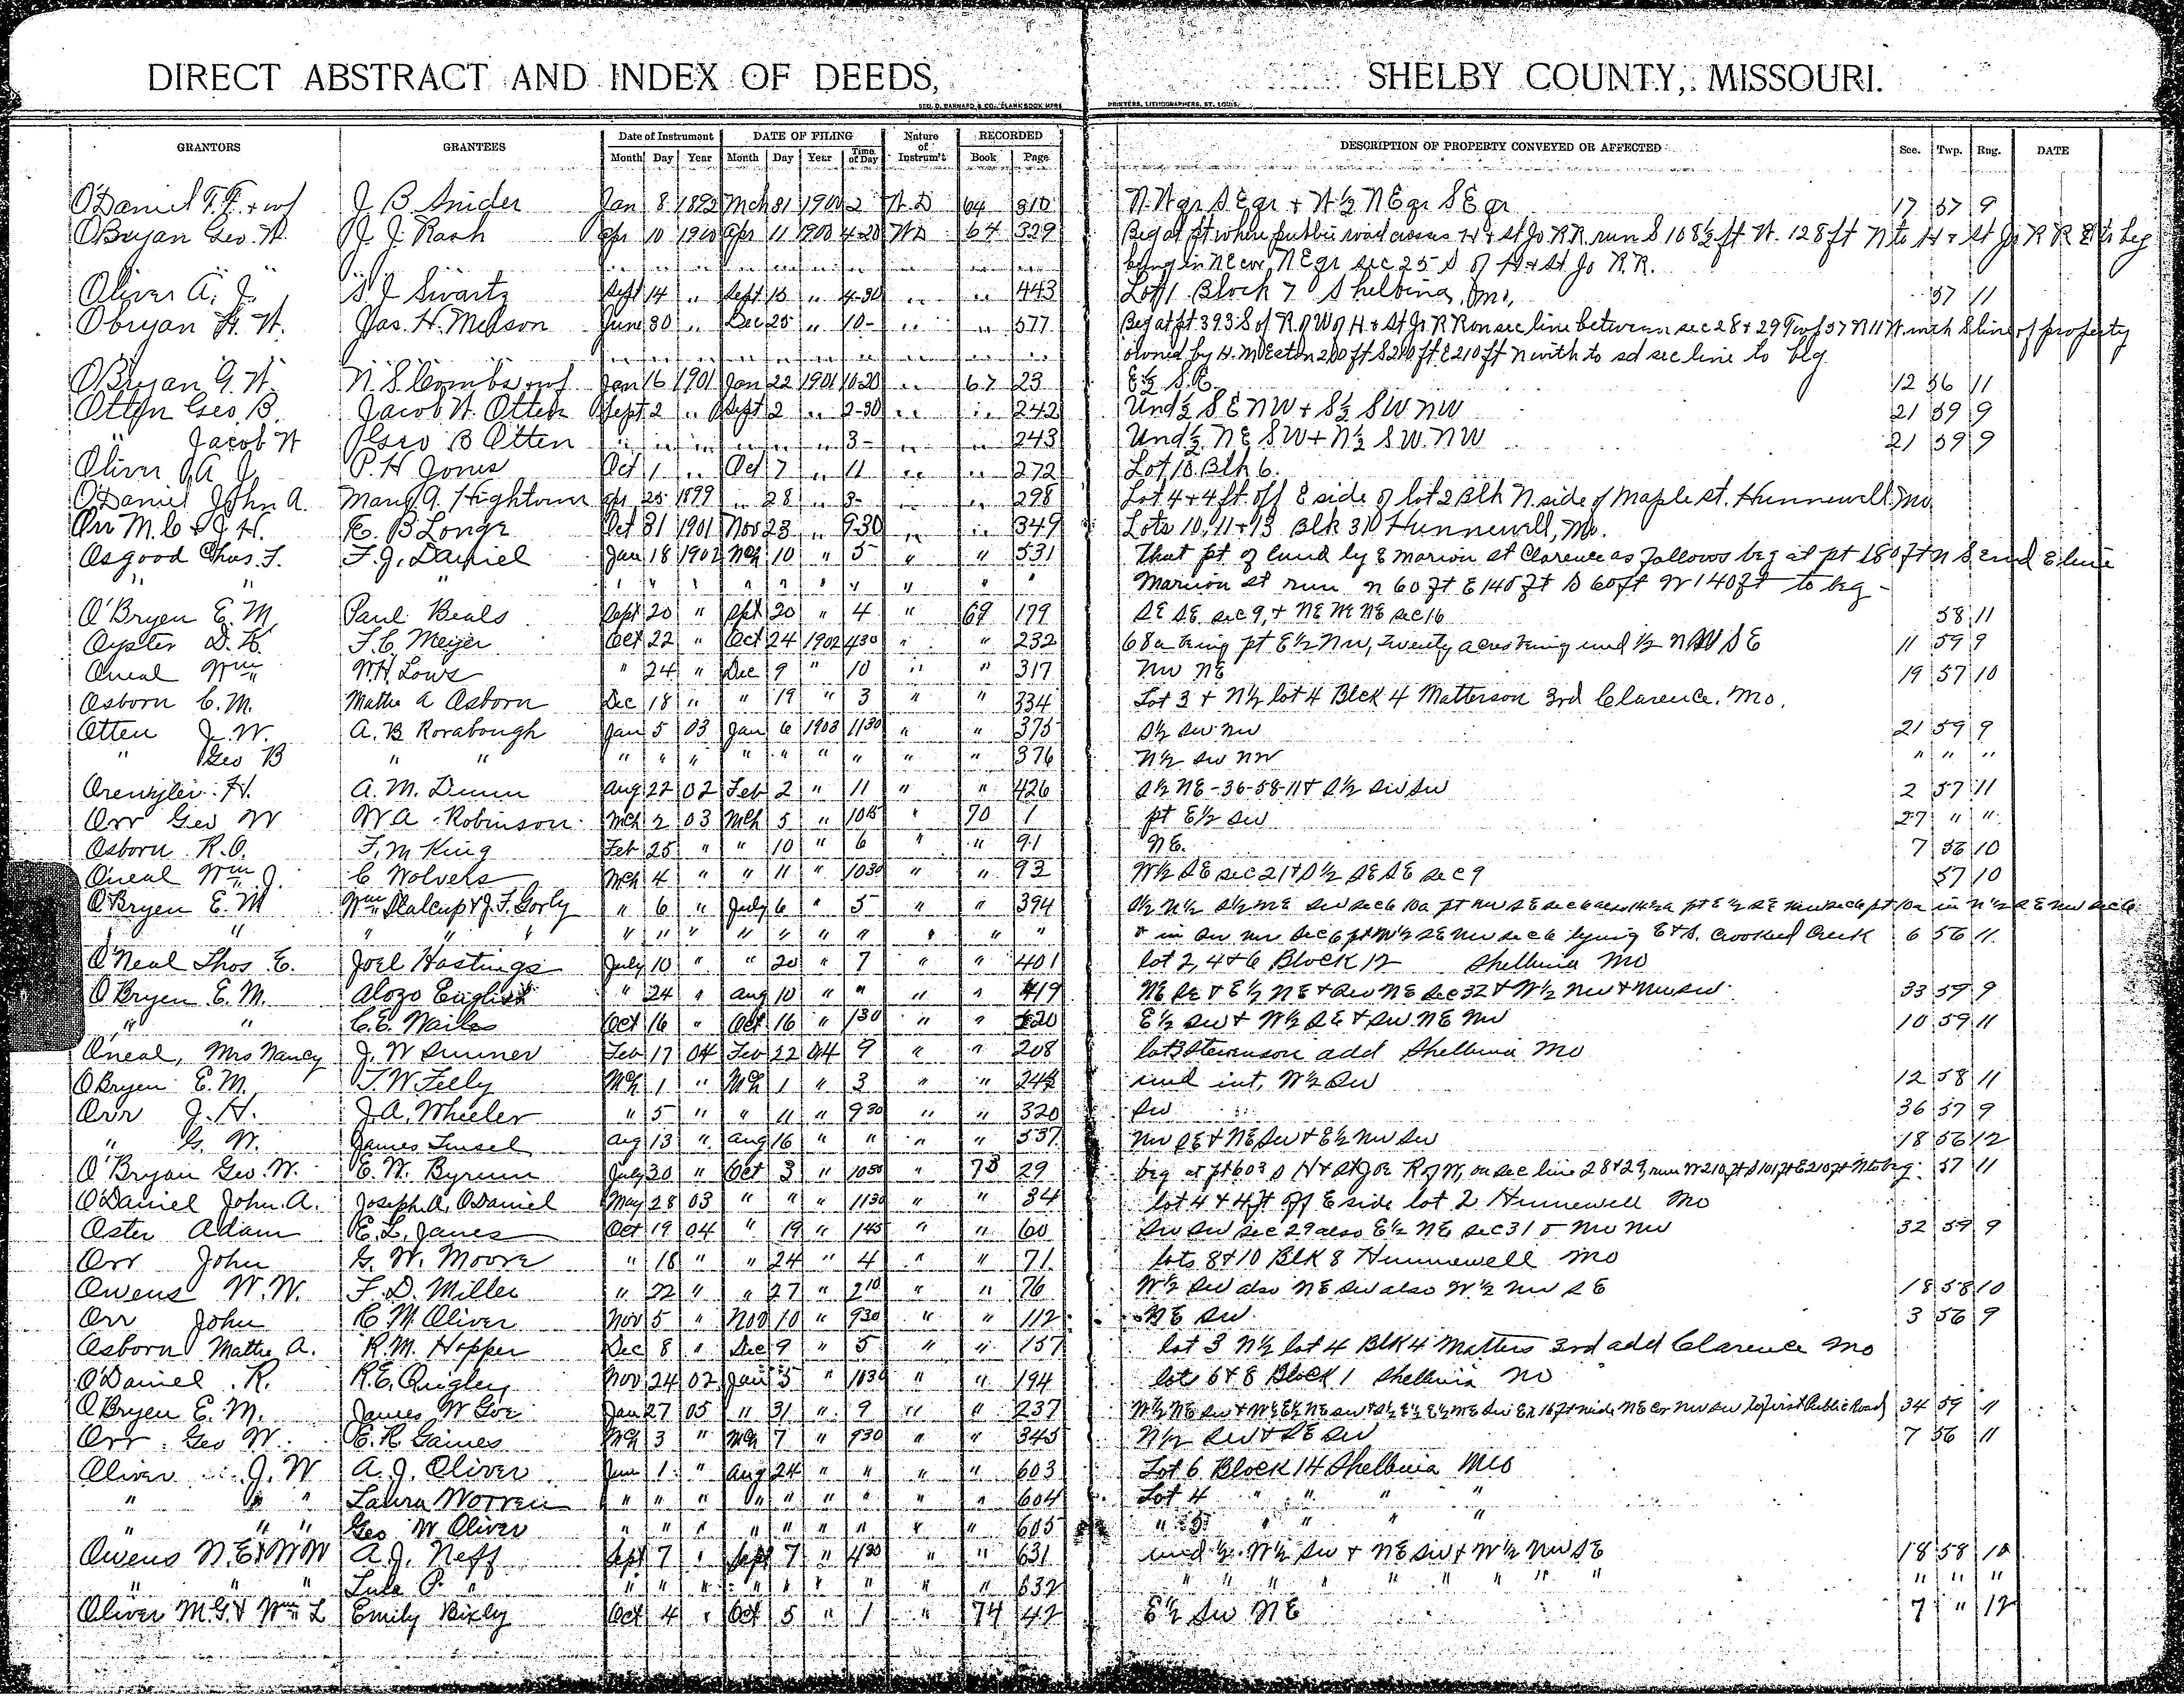 DIRECT ABSTRACT AND INDEX OF DEEDS, SHELBY COUNTY, MISSOURI.
GEO. D. BARNARD & CO., BLANK BOOK MFRS PRINTERS, LITHOGRAPHERS, ST. LOUIS.
GRANTORS GRANTEES Date of Instrument DATE OF FILING Nature of Instrum't RECORDED DESCRIPTION OF PROPERTY CONVEYED OR AFFECTED Sec. Twp. Rng. DATE
Month Day Year Month Day Year Time of Day Book Page
O'Daniel T. F. + wf J B Snider Jan 8 1892 Mch 31 1900 2 W. D 64 310 N. W qr S E qr + W ½ N E qr S E qr 17 57 9
OBryan Geo. W. J. J. Rash Apr 10 1900 Apr 11 1900 4-20 W D 64 329 Beg at pt where public road crosses H + St Jo RR run S 108½ ft W. 128 ft N to H + St Jo R R E to beg
.. .. .. .. .. .. .. .. .. .. being in NE cor NE qr sec 25 S of H + St Jo R.R.
Oliver A. J. S J Swartz Sept 14 .. Sept 15 .. 4-30 .. .. 443 Lot 1 Block 7 Shelbina, Mo, 57 11
Obryan G. W. Jas. H. Melson June 30 .. Dec 25 .. 10- .. .. 577 Beg at pt 393 S of R of W of H + St Jo R R on sec line between sec 28 + 29 Twp 57 R 11 W with S line of property
.. .. .. .. .. .. .. .. .. .. owned by H. M Eston 210 ft S 210 ft E 210 ft N with to sd sec line to beg.
OBryan G. W. N. S Combs + wf Jan 16 1901 Jan 22 1901 10-20 .. 67 23 E½ S.E. 12 56 11
Otten Geo B. Jacob W. Otten Sept 2 .. Sept 2 .. 2-30 .. .. 242 Und ½ S E NW + S½ SW NW 21 59 9
" Jacob W Geo B Otten .. .. .. .. .. .. 3- .. .. 243 Und ½ NE SW + N½ SW. NW 21 59 9
Oliver A J P. H Jones Oct 1 .. Oct 7 .. 11 .. .. 272 Lot 10 Blk 6.
O'Daniel John A. Mary A. Hightower Apr 25 1899 .. 28 .. 3- .. 298 Lot 4 + 4 ft. off E side of lot 2 Blk N side of Maple St. Hunnewell Mo.
Orr M. C + J. H. E. B Longe Oct 31 1901 Nov 23 .. 9-30 .. .. 349 Lots 10, 11 + 13 Blk 30 Hunnewell, Mo.
Osgood Chas. S. F. J. Daniel Jan 18 1902 Mch 10 " 5 " " 531 That pt of land by E Marion st Clarence as follows beg at pt 180 ft n S end E line
" " " " " " " " " " " " " Marion st run n 60 ft E 140 ft S 60 ft W 140 ft to beg -
O'Bryen E. M Paul Beals Sept 20 " Sept 20 " 4 " 69 179 SE SE sec 9, + NE NE sec 16 58 11
Oyster D. K. F. C. Meyer Oct 22 " Oct 24 1902 430 " " 232 68a being pt E½ NW, twenty acres being und ½ N SW SE 11 59 9
Oneal Wm W. H. Lows " 24 " Dec 9 " 10 " " 317 NW NE 19 57 10
Osborn C. M. Mathe A Osborn Dec 18 " " 19 " 3 " " 334 Lot 3 + N½ lot 4 Blck 4 Matterson 3rd Clarence. Mo.
Otten J. W. A. B Rorabough Jan 5 03 Jan 6 1903 1130 " " 375 S½ SW NW 21 59 9
" Geo B " " " " " " " " " " " 376 N½ SW NW " " "
H. A. M. Dunn Aug 22 02 Feb 2 " 11 " " 426 S½ NE - 36-58-11 + S½ SW SW 2 57 11
Orr Geo W W A Robinson Mch 2 03 Mch 5 " 1015 " 70 1 pt E½ SW 27 " "
Osborn R. O. F. M King Feb 25 " " 10 " 6 " " 91 NE. 7 56 10
Oneal Wm J. C Wolvers Mch 4 " " 11 " 1030 " " 92 W½ SE sec 21 + S½ SE SE sec 9 57 10
O'Bryen E. M Wm Stalcup + J. F. Gorby " 6 " July 6 " 5 " " 394 S½ N½ S½ NE SW sec 6 10a pt NW SE sec 6 also 14½a pt E½ SE NW sec 6 pt 10a in N½ SE NW sec 6
" " " " " " " " " " " " " " + in SW NW sec 6 pt W½ SE NW sec 6 lying E + S. Crooked Creek 6 56 11
O'Neal Thos E. Joel Hastings July 10 " " 20 " 7 " " 401 lot 2, 4 + 6 Block 12 Shelbina Mo
O'Bryen E. M. Alozo English " 24 " Aug 10 " " " " 419 NE SE + E½ NE + SW NE Sec 32 + W½ NW + NW SW 33 59 9
" " C. E. Wailes Oct 16 " Oct 16 " 130 " " 520 E½ SW + W½ SE + SW. NE NW 10 59 11
Oneal, Mrs Nancy J. W Sumner Feb 17 04 Feb 22 04 9 " " 208 lot 3 Stevenson add Shelbina Mo
OBryen E. M. T. W Felly Mch 1 " Mch 1 " 3 " " 244 und int, W½ SW 12 58 11
Orr J. H. J. A. Wheeler " 5 " " 11 " 930 " " 320 SW 36 57 9
" G. W. James Tinsel Aug 13 " Aug 16 " " " " 537 NW SE + NE SW + E½ NW SW 18 56 12
O'Bryan Geo. W. E. W. Byrum July 30 " Oct 3 " 1050 " 73 29 beg at pt 603 S H + St Joe R of W, on sec line 28 + 29, run W 210 ft S 101 ft E 210 ft N to beg. 57 11
O'Daniel John. A. Joseph. A. O'Daniel May 28 03 " " " 1130 " " 34 lot 4 + 4 ft off E side lot 2 Hunnewell Mo
Oster Adam E. L. Janes Oct 19 04 " 19 " 145 " " 60 SW SW sec 29 also E½ NE sec 31 + NW NW 32 59 9
Orr John G. W. Moore " 18 " " 24 " 4 " " 71 lots 8 + 10 Blk 8 Hunnewell Mo
Owens W. W. F. D. Miller " 22 " " 27 " 210 " " 76 W½ SW also NE SW also W½ NW SE 18 58 10
Orr John C. M. Oliver Nov 5 " Nov 10 " 930 " " 112 NE SW. 3 56 9
Osborn Mathe A. R. M. Hopper Dec 8 " Dec 9 " 5 " " 157 lot 3 N½ lot 4 Blk 4 Matters 3rd add Clarence Mo
O'Daniel R. R. E. Quigley Nov 24 02 Jan 5 " 1030 " " 194 lots 6 + 8 Block 1 Shelbina Mo
OBryen E. M. James W Goe Jan 27 05 " 31 " 9 " " 237 W½ NE SW + W½ E½ NE SW + S½ E½ E½ NE SW Ex 16 ft wide NE Cor NW SW to first Public Road 34 59 11
Orr Geo W. E. R Gaines Mch 3 " Mch 7 " 930 " " 345 N½ SW + SE SW 7 56 11
Oliver J. W A. J. Oliver June 1 " Aug 24 " " " " 603 Lot 6 Block 14 Shelbina Mo
" " " Laura Worren " " " " " " " " " 604 Lot 4 " " " "
" " " Geo W Oliver " " " " " " " " " 605 " 5 " " " "
Owens N. E + W W A. J. Neff Sept 7 " Sept 7 " 430 " " 631 und ½ W½ SW + NE SW + W½ NW SE 18 58 10
" " " Lula P. " " " " " " " " " " 632 " " " " " " " " " " " "
Oliver M. G. + Wm L Emily Bixly Oct 4 " Oct 5 " 1 " 74 42 E½ SW NE 7 " 12